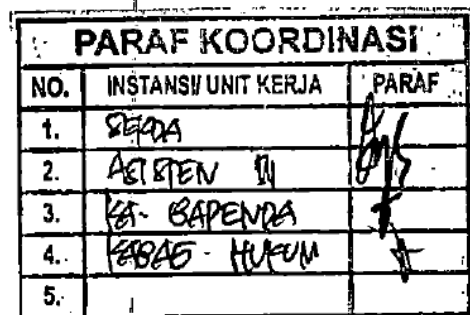 PARAF KOORDINASI
NO. INSTANSI/UNIT KERJA PARAF
1. SEKDA
2. ASISTEN III
3. KA. BAPENDA
4. KABAG. HUKUM
5.